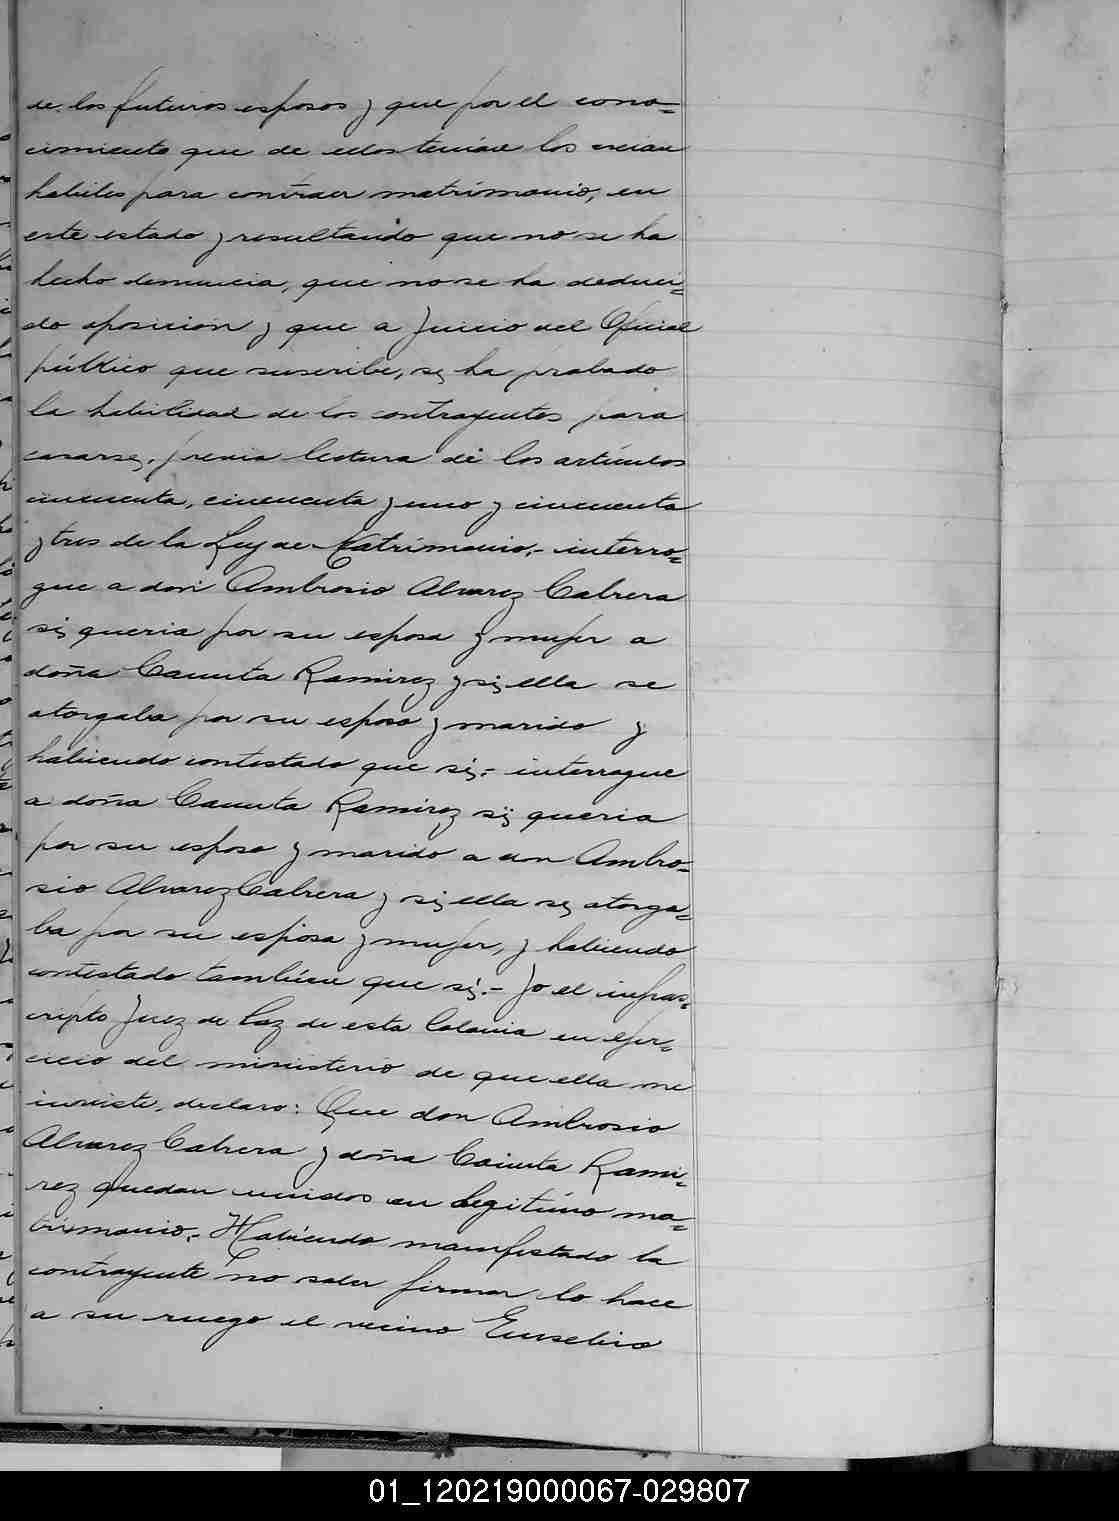 de los futuros esposos y que por el cono=
cimiento que de ellos tenian los creian
habiles para contraer matrimonio, en
este estado y resultando que no se ha
hecho denuncia, que no se ha deduci=
do oposicion y que a juicio del Oficial
público que suscribe, se ha probado
la habilidad de los contrayentes para
casarse, previa lectura de los articulos
cincuenta, cincuenta y uno y cincuenta
y tres de la Ley de Matrimonio,- interro=
gue a don Ambrosio Alvarez Cabrera
si queria por su esposa y mujer a
doña Canuta Ramirez y si ella se
otorgaba por su esposo y marido y
habiendo contestado que si;- interrogue
a doña Canuta Ramirez si queria
por su esposo y marido a don Ambro=
sio Alvarez Cabrera y si ella se otorga=
ba por su esposa y mujer, y habiendo
contestado tambien que si.- Yo el infras=
cripto Juez de Paz de esta Colonia en ejer=
cicio del ministerio de que ella me
inviste, declaro: Que don Ambrosio
Alvarez Cabrera y doña Canuta Rami=
rez quedan unidos en legitimo ma=
trimonio.- Habiendo manifestado la
contrayente no saber firmar lo hace
a su ruego el vecino Eusebio
01_120219000067-029807